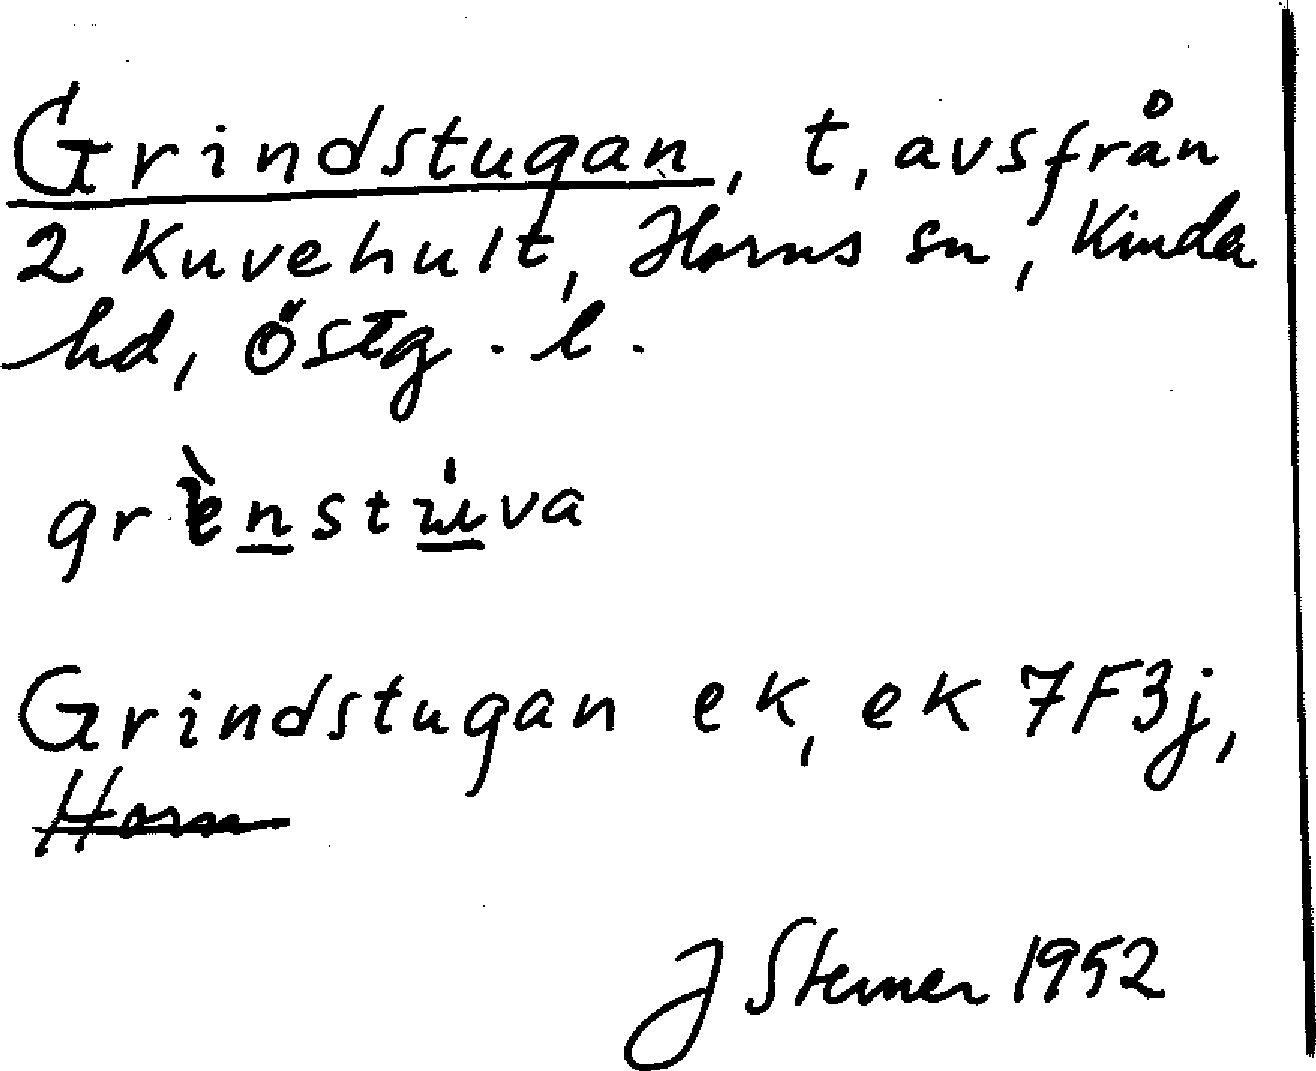 Grindstugan, t, avs från
2 Kuvehult, Horns sn, Kinda
hd, Östg. l.
grènstu̇va
Grindstugan ek, ek 7F3j,
Horn
J Sterner 1952